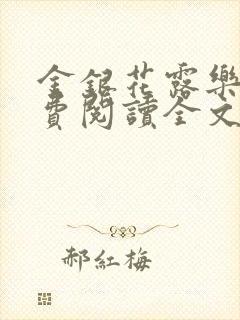 金銀花露樂
費閱讀全文
郝紅梅